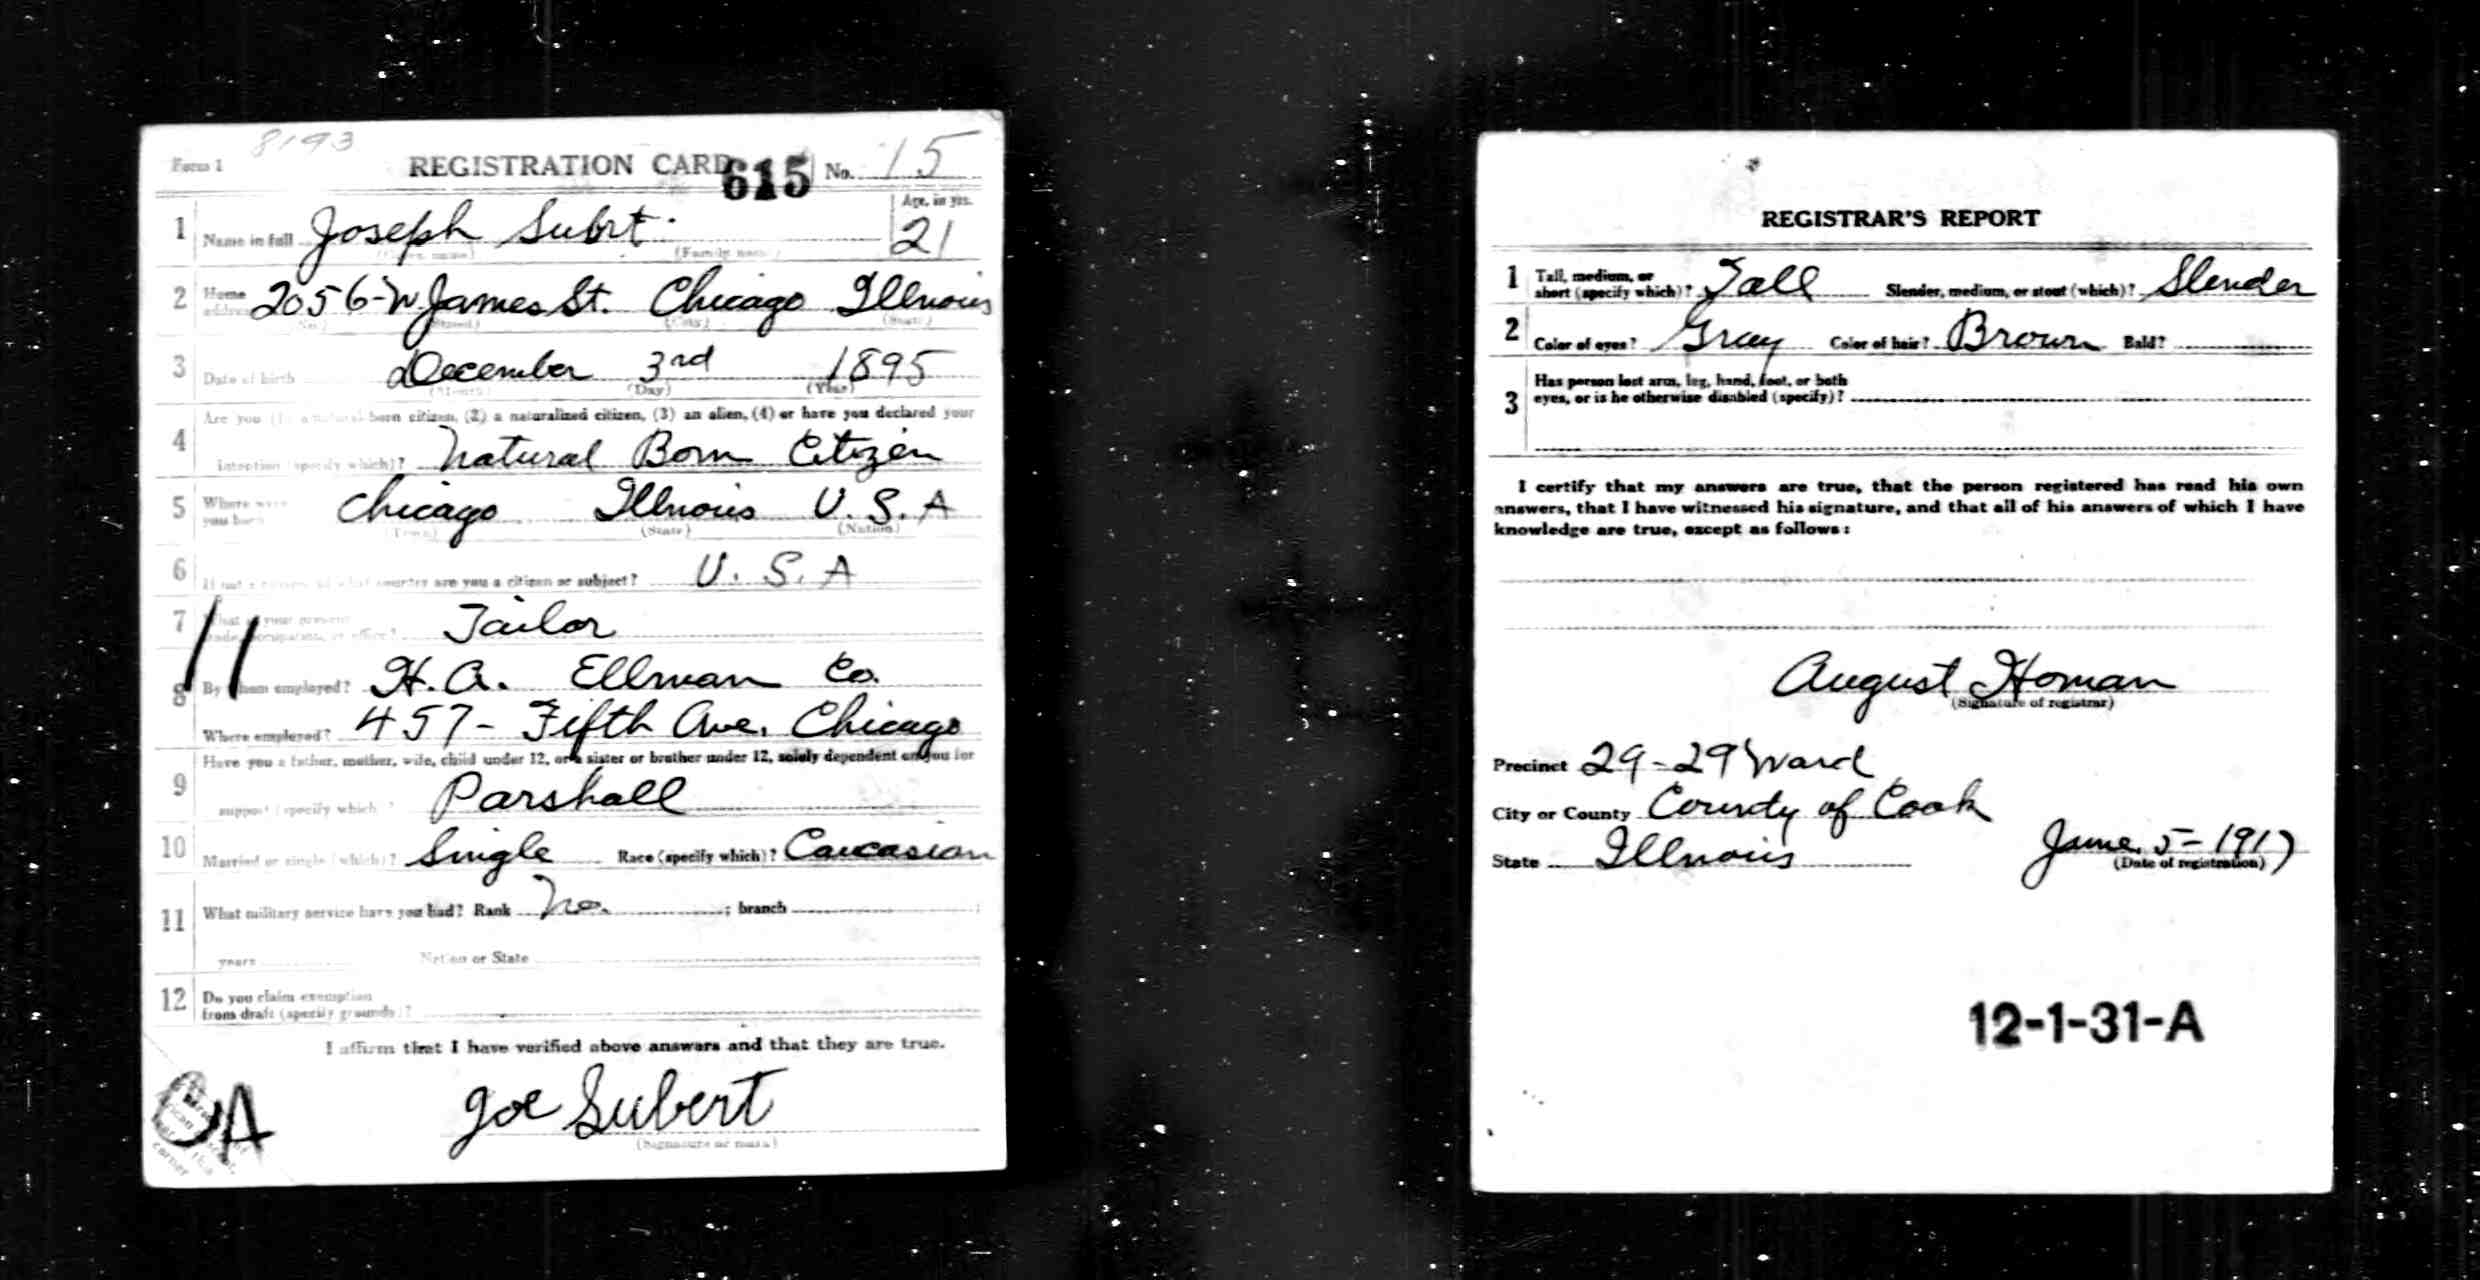 8193
Form 1 REGISTRATION CARD 615 No. 15
1 Name in full Joseph Subrt. Age, in yrs. 21
(Given name) (Family name)
2 Home address 2056-W. James St. Chicago Illinois
(No.) (Street) (City) (State)
3 Date of birth December 3rd 1895
(Month) (Day) (Year)
4 Are you (1) a natural-born citizen, (2) a naturalized citizen, (3) an alien, (4) or have you declared your
intention (specify which)? Natural Born Citizen
5 Where were you born Chicago Illinois U.S.A
(Town) (State) (Nation)
6 If not a citizen, of what country are you a citizen or subject? U.S.A
7 What is your present trade, occupation, or office? Tailor
11
8 By whom employed? H.A. Ellman Co.
Where employed? 457- Fifth Ave. Chicago
9 Have you a father, mother, wife, child under 12, or a sister or brother under 12, solely dependent on you for
support (specify which)? Parshall
10 Married or single (which)? Single Race (specify which)? Caucasian
11 What military service have you had? Rank No. ; branch
years Nation or State
12 Do you claim exemption
from draft (specify grounds)?
I affirm that I have verified above answers and that they are true.
Joe Subert
(Signature or mark)
corner
A
REGISTRAR'S REPORT
1 Tall, medium, or
short (specify which)? Tall Slender, medium, or stout (which)? Slender
2 Color of eyes? Gray Color of hair? Brown Bald?
3 Has person lost arm, leg, hand, foot, or both
eyes, or is he otherwise disabled (specify)?
I certify that my answers are true, that the person registered has read his own
answers, that I have witnessed his signature, and that all of his answers of which I have
knowledge are true, except as follows:
August Homan
(Signature of registrar)
Precinct 29-29 Ward
City or County County of Cook
State Illinois June 5-1917
(Date of registration)
12-1-31-A